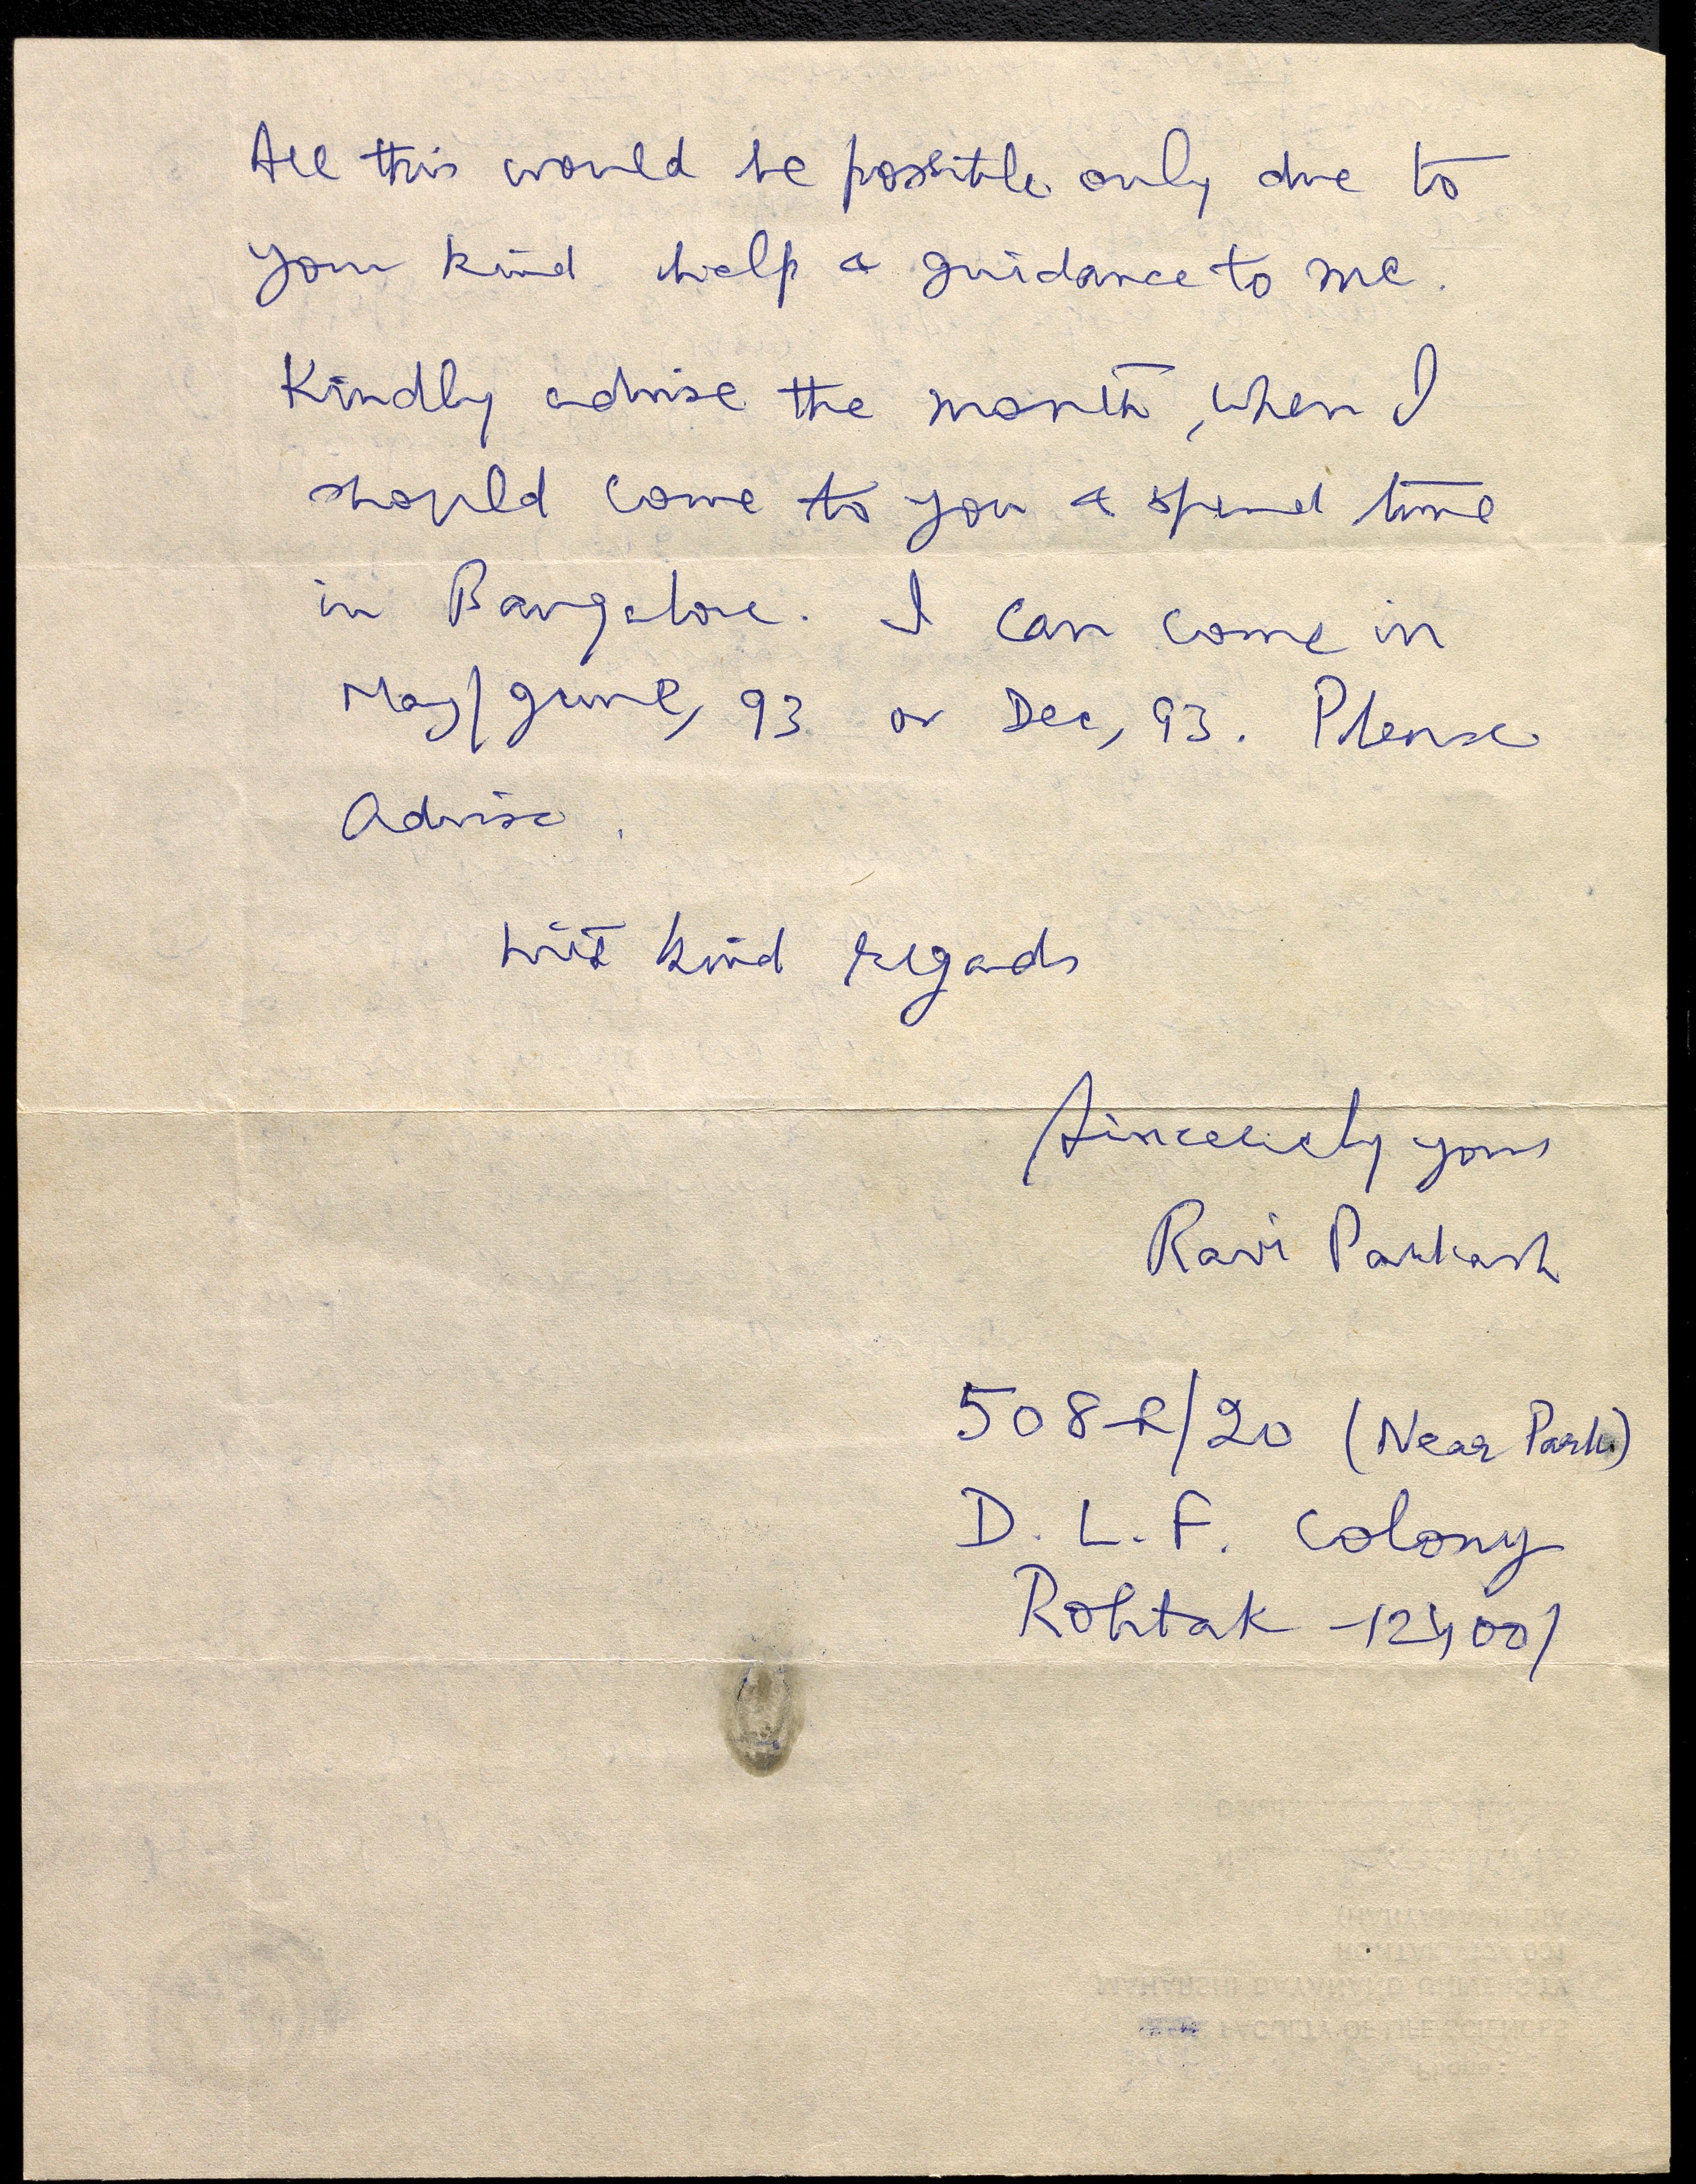 All this would be possible only due to
your kind help & guidance to me.
Kindly advise the month, when I
should come to you & spend time
in Bangalore. I can come in
May/June, 93 or Dec, 93. Please
Advise.
with kind regads
Sincerely yours
Ravi Parkash
508-R/20 (Near Park)
D. L. F. Colony
Rohtak - 124001
Phone:
FACULTY OF LIFE SCIENCES
MAHARSHI DAYANAND UNIVERSITY
ROHTAK-124 001